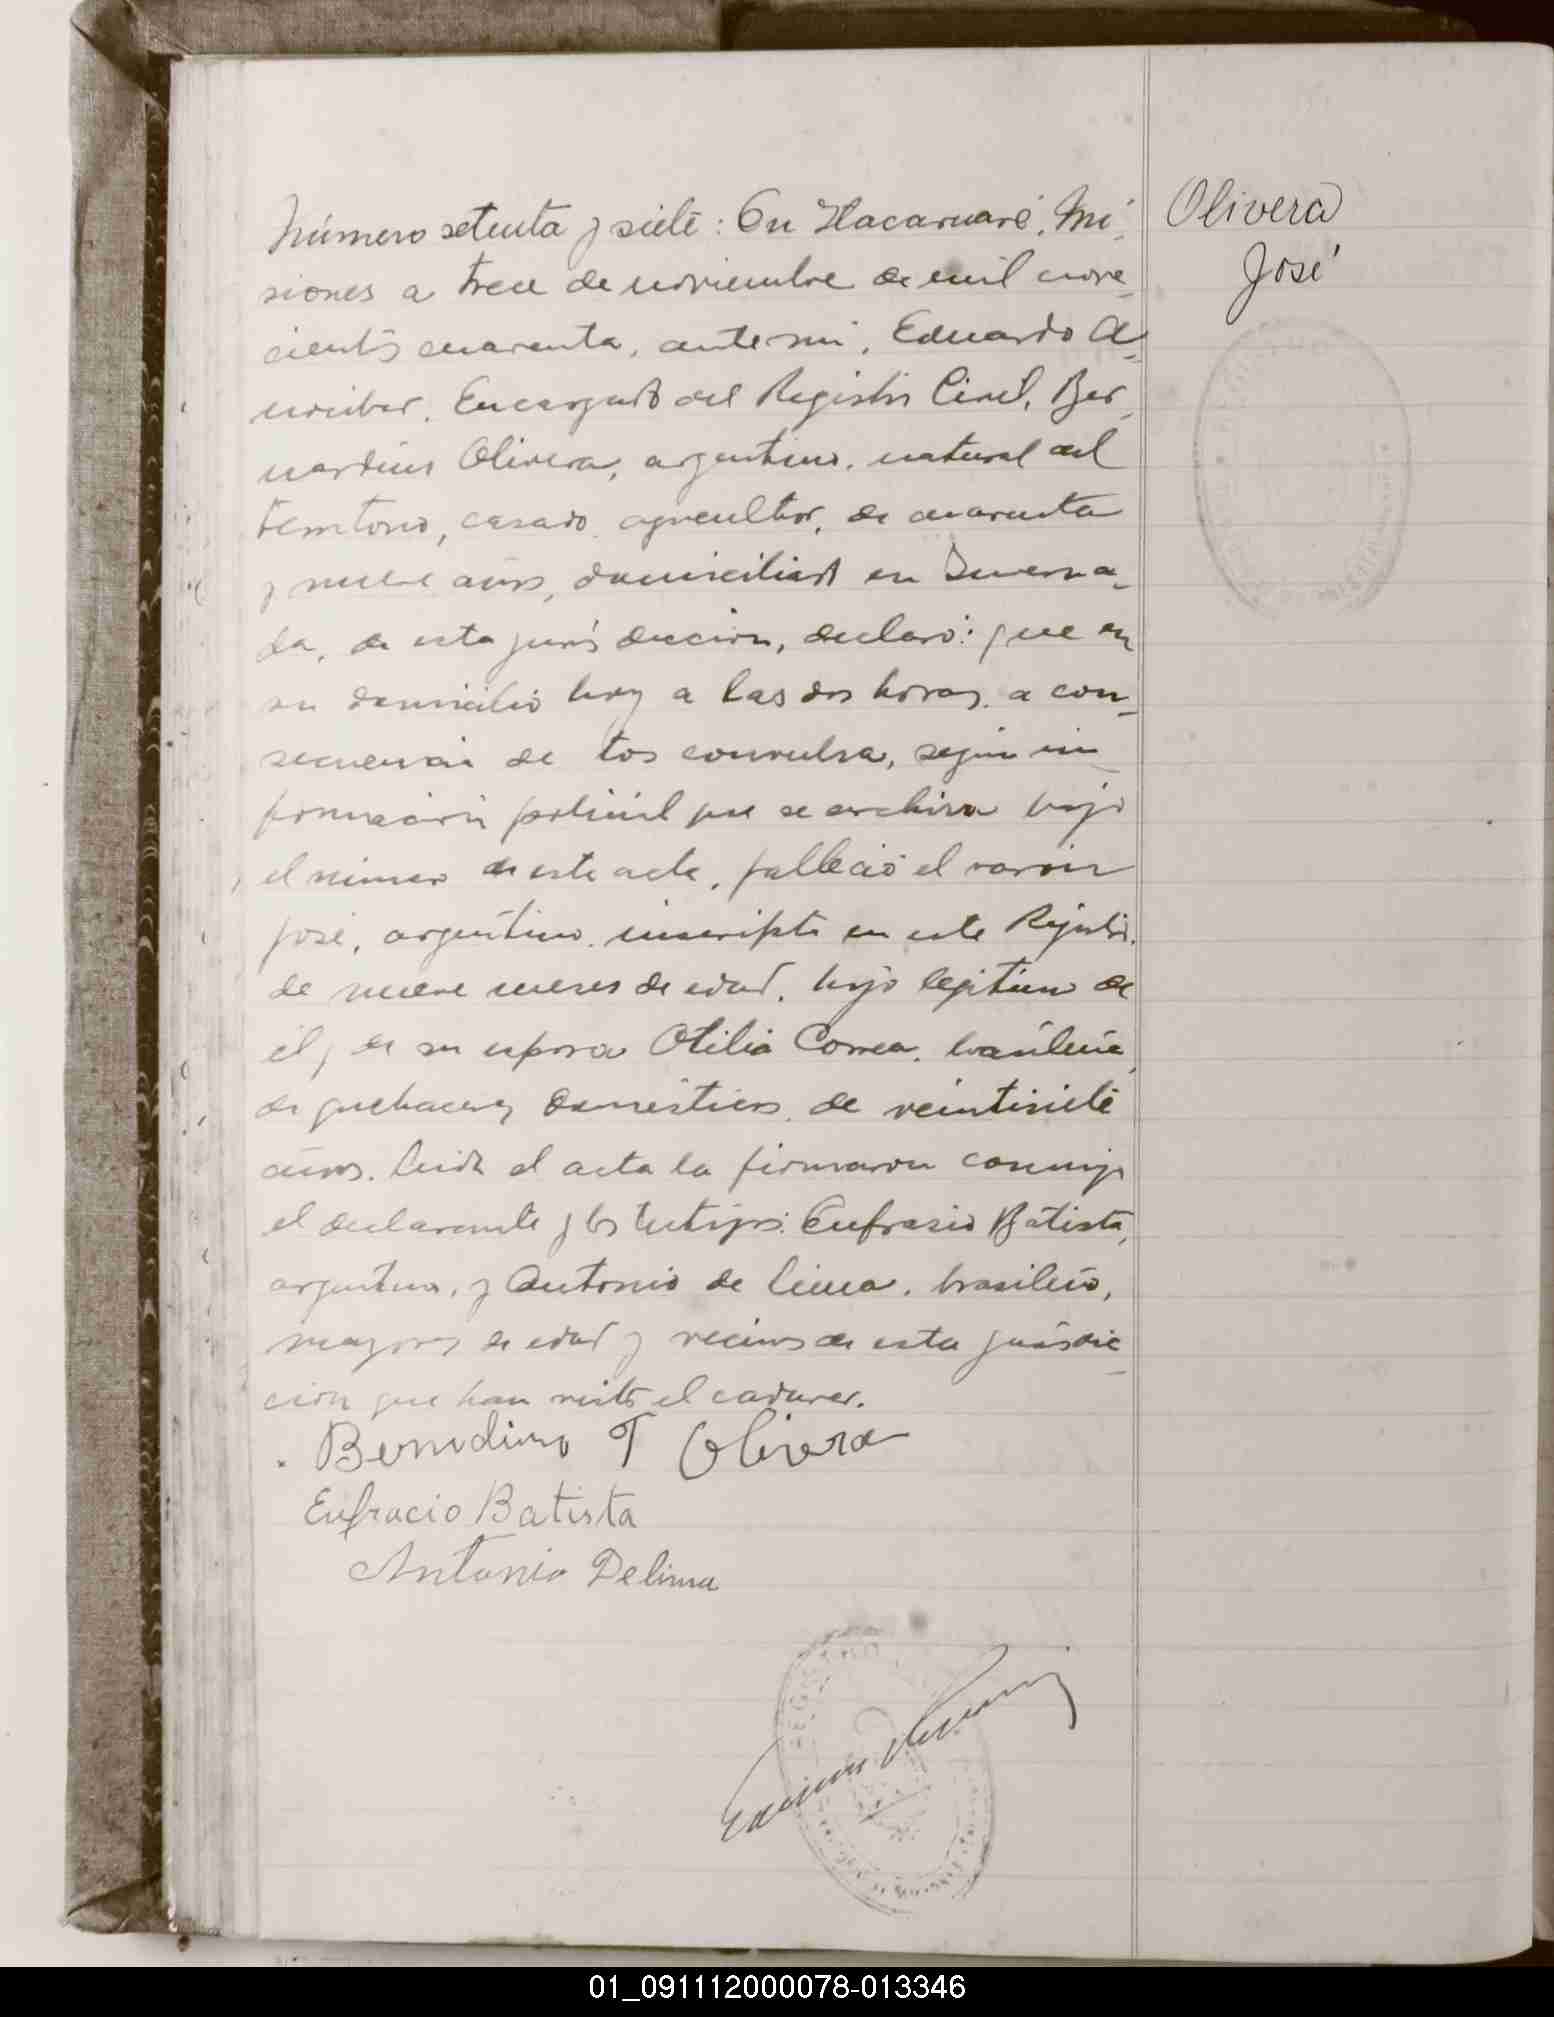 Número setenta y siete: En Itacaruaré, Mi-
siones a trece de noviembre de mil nove-
cientos cuarenta, ante mi, Eduardo A-
Encargado del Registro Civil, Ber-
nardino Olivera, argentino, natural del
territorio, casado, agricultor, de cuarenta
y nueve años, domiciliado en Inverna-
da, de esta jurisdiccion, declaró: que en
su domicilio hoy a las dos horas, a con-
secuencia de tos convulsa, según in-
formación policial que se archiva bajo
el número de este acta, falleció el varón
José, argentino, inscripto en este Registro,
de nueve meses de edad, hijo legitimo de
él y de su esposa Otilia Correa, brasileña,
de quehaceres domésticos, de veintisiete
años. Leida el acta la firmaron conmigo
el declarante y los testigos: Eufrasio Batista,
argentino, y Antonio de Lima, brasileño,
mayores de edad y vecinos de esta jurisdic-
ción que han visto el cadaver.
Olivera
José
T Olivera
Eufracio Batista
Antonio Delima
01_091112000078-013346